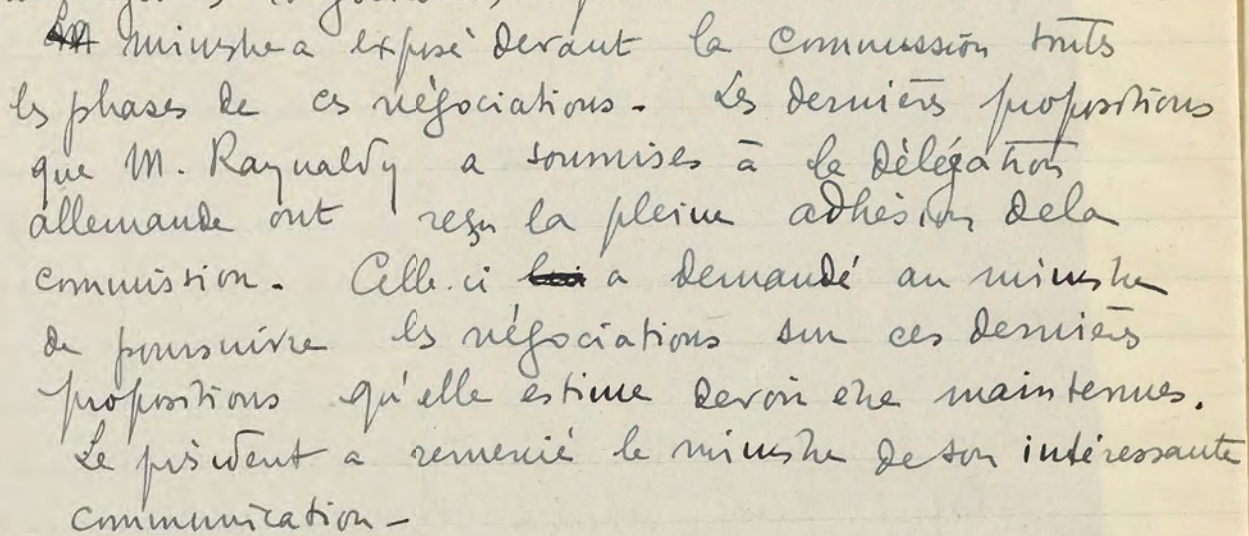 ministre a exposé devant la commission toutes
les phases de ces négociations. Les dernières propositions
que M. Raynaldy a soumises à la délégation
allemande ont reçu la pleine adhésion de la
commission. Celle-ci a demandé au ministre
de poursuivre les négociations sur ces dernières
propositions qu'elle estime devoir être maintenues.
Le président a remercié le ministre de son intéressante
communication -